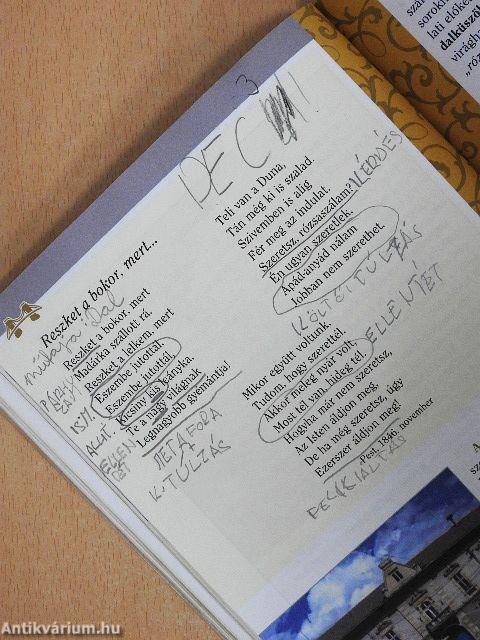 Reszket a bokor, mert...
műfaja: Dal
Reszket a bokor, mert
Madárka szálloti rá.
Reszket a lelkem, mert
Eszembe jutottál,
Eszembe jutottál,
Kicsiny kis leányka,
Te a nagy világnak
Legnagyobb gyémántja!
ELLEN
TÉT
METAFORA
K. TÚLZÁS
3
Teli van a Duna,
Tán még ki is szalad.
Szivemben is alig
Fér meg az indulat.
Szeretsz, rózsaszálam?
KÉRDÉS
Én ugyan szeretlek,
Apád-anyád nálam
Jobban nem szerethet.
KÖLTŐI TÚLZÁS
Mikor együtt voltunk,
Tudom, hogy szerettél.
Akkor meleg nyár volt,
Most tél van, hideg tél.
ELLENTÉT
Hogyha már nem szeretsz,
Az Isten áldjon meg,
De ha még szeretsz, úgy
Ezerszer áldjon meg!
Pest, 1846. november
FELKIÁLTÁS
Antikvárium.hu